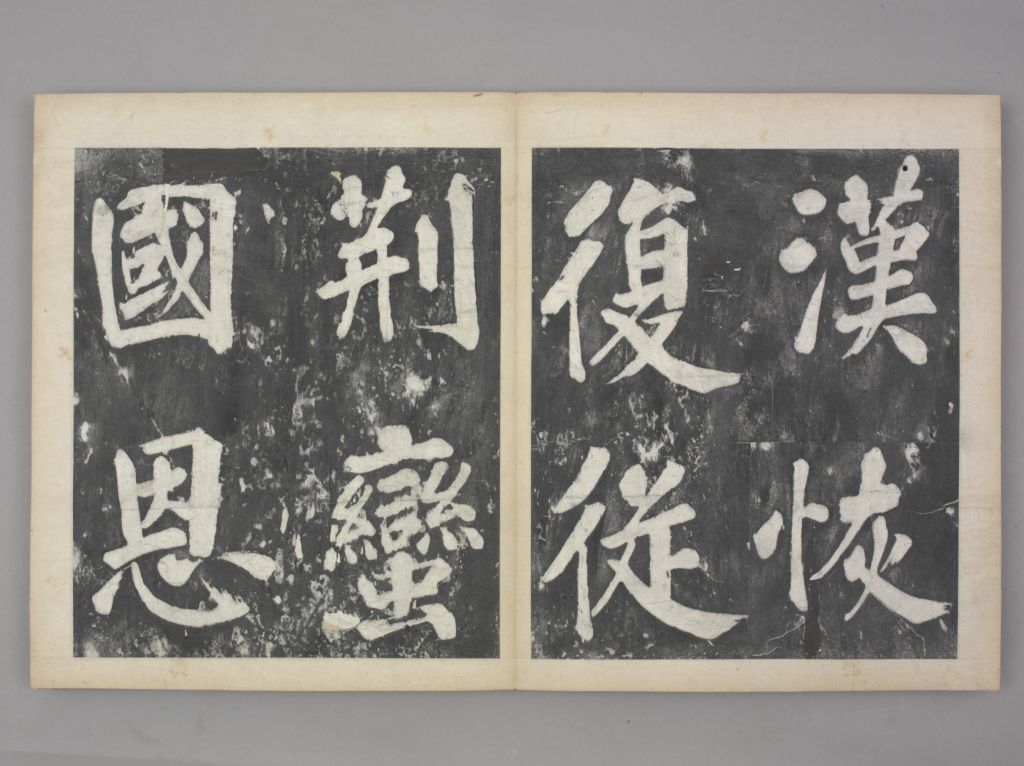 漢恢
復從
荊蠻
國恩